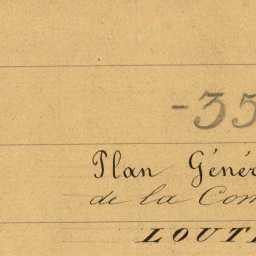 -35
Plan Génér
de la Com
LOUT